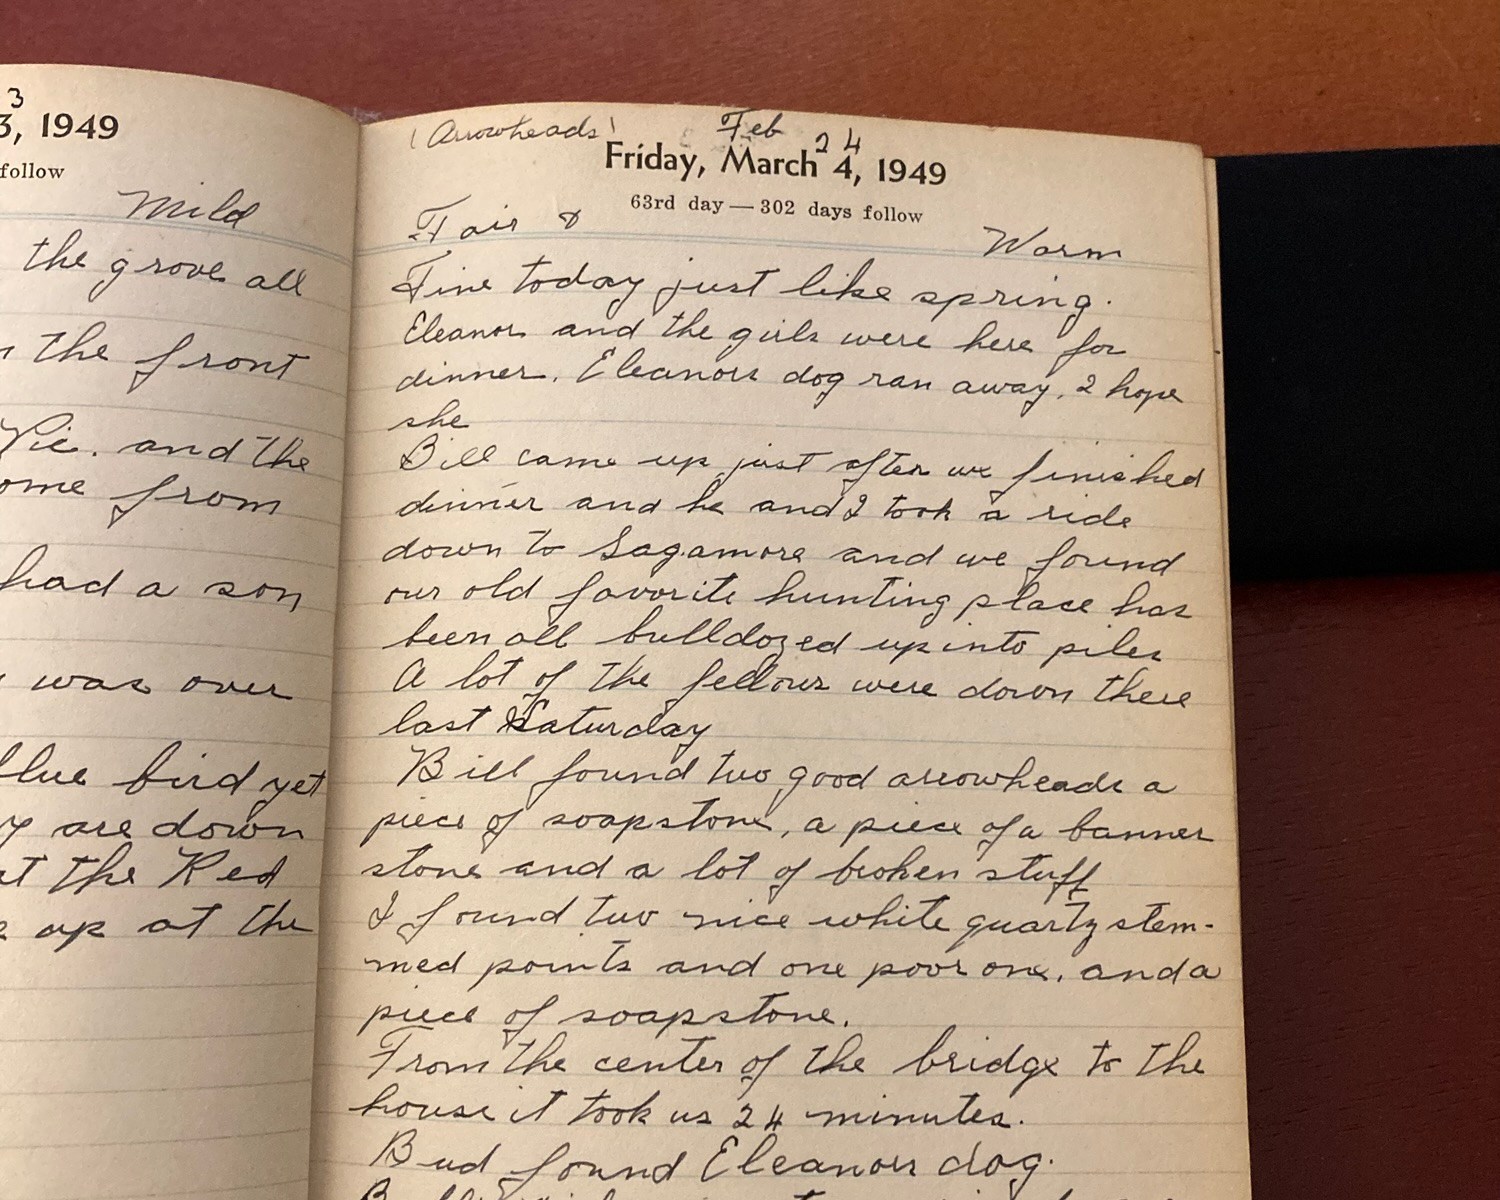 3
3, 1949
follow
Mild
the grove all
the front
Vic. and the
ome from
had a son
was over
blue bird yet
y are down
at the Red
up at the
(Arrowheads)
Feb
24
Friday, March 4, 1949
63rd day — 302 days follow
Fair &
Warm
Fine today just like spring.
Eleanor and the girls were here for
dinner. Eleanors dog ran away. I hope
she
Bill came up just after we finished
dinner and he and I took a ride
down to Sagamore and we found
our old favorite hunting place has
been all bulldozed up into piles
A lot of the fellows were down there
last Saturday
Bill found two good arrowheads a
piece of soapstone, a piece of a banner
stone and a lot of broken stuff
I found two nice white quartz stem-
med points and one poor one. and a
piece of soapstone.
From the center of the bridge to the
house it took us 24 minutes.
Bud found Eleanors dog.